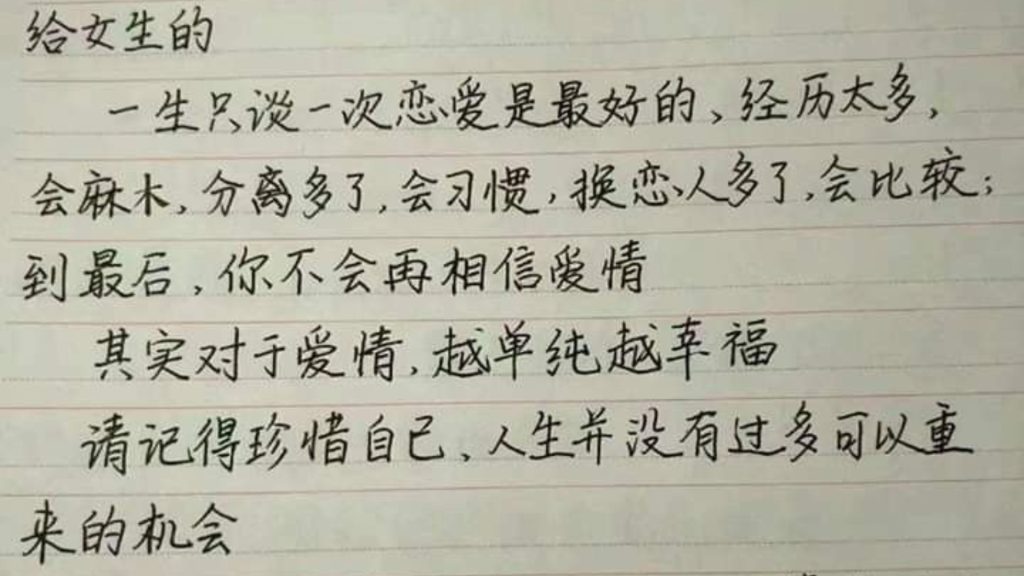 给女生的
一生只谈一次恋爱是最好的、经历太多,
会麻木,分离多了,会习惯,换恋人多了,会比较;
到最后,你不会再相信爱情
其实对于爱情,越单纯越幸福
请记得珍惜自己、人生并没有过多可以重
来的机会